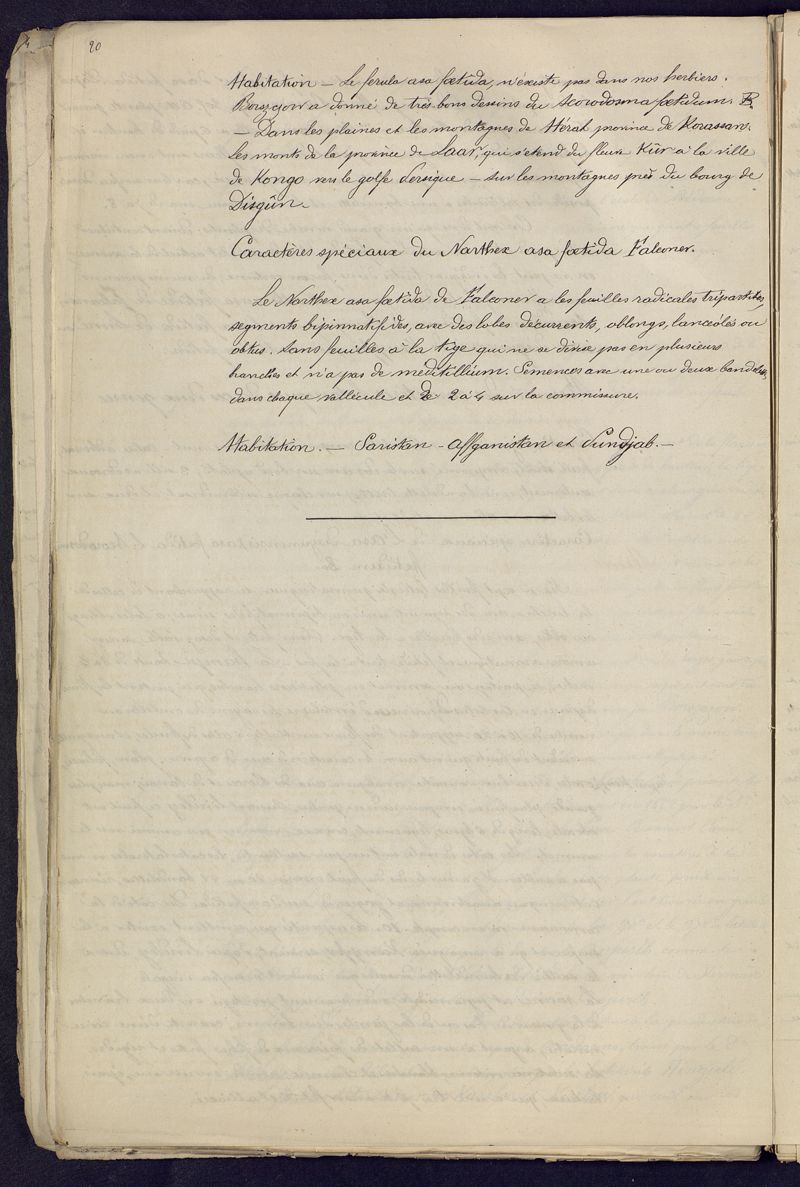 20
Habitation — Le ferula asa fœtida, n'existe pas dans nos herbiers.
Borszczow a donné de très bons dessins du Scorodosma fœtidum. B.
— Dans les plaines et les montagnes de Hérat province de Korassan.
Les monts de la province de Laar, qui s'etend du fleuve Kûr à la ville
de Kongo vers le golfe Persique — sur les montagnes près du bourg de
Disgûn.
Caractères spéciaux du Narthex asa fœtida Falconer.
Le Narthex asa fœtida de Falconer a les feuilles radicales tripartites,
segments bipinnatifides, avec des lobes décurrents, oblongs, lancéolés ou
obtus. Sans feuilles à la tige qui ne se divise pas en plusieurs
branches et n'a pas de meditillium. Semences avec une ou deux bandelettes
dans chaque vallécule et de 2 à 4 sur la commissure.
Habitation. — Saristan - Affganistan et Pundjab. —